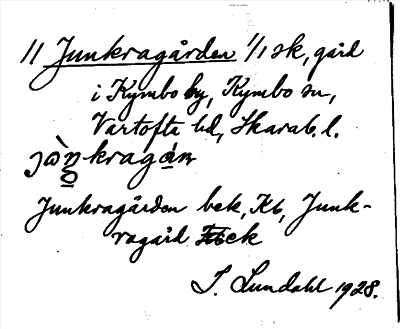 11 Junkragården 1/1 sk, gård
i Kymbo by, Kymbo sn,
Vartofta hd, Skarab. l.
Junkragården bek, Kb, Junk-
ragård Eek
I. Lundahl 1928.